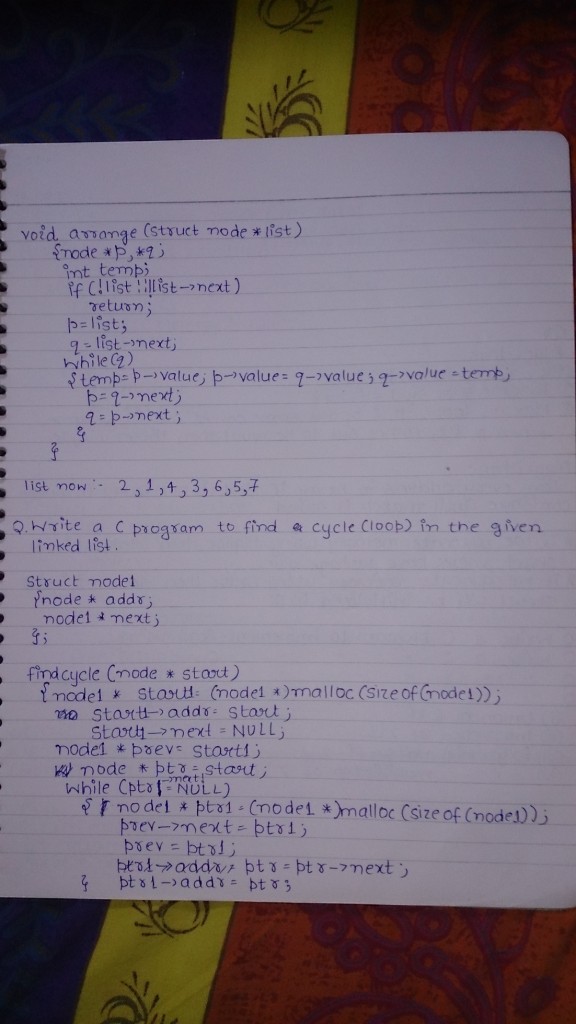 void arrange (struct node * list)
{node *p, *q;
int temp;
if (!list || !list->next)
return;
p=list;
q=list->next;
while(q)
{temp=p->value; p->value= q->value; q->value =temp;
p=q->next;
q=p->next;
}
}
list now :- 2,1,4,3,6,5,7
Q. Write a C program to find a cycle (loop) in the given
linked list.
Struct node1
{node * addr;
node1 * next;
};
findcycle (node * start)
{node1 * start1= (node1 *)malloc (sizeof(node1));
start1->addr= start;
start1->next = NULL;
node1 * prev= start1;
node * ptr=start;
while (ptr!=NULL)
{ node1 * ptr1 = (node1 *)malloc (sizeof (node1));
prev->next= ptr1;
prev = ptr1;
ptr=ptr->next;
} ptr1->addr= ptr;